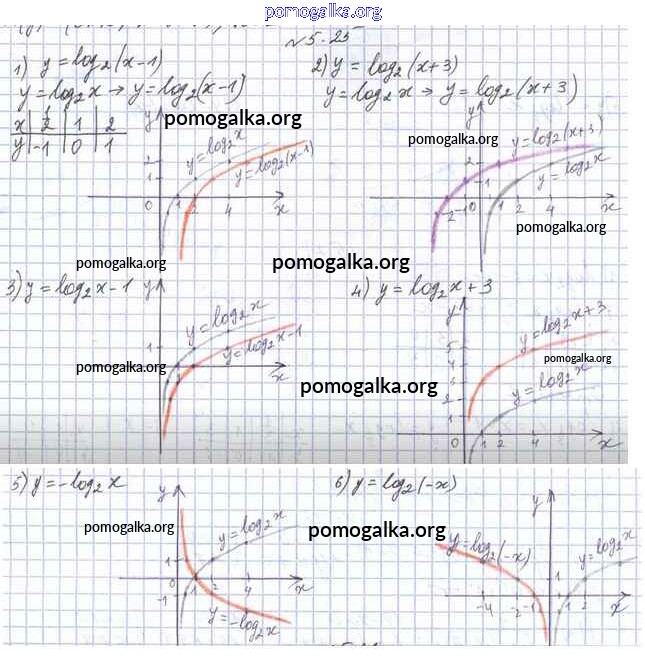 pomogalka.org
№5.25
1) y = log₂(x-1)
y = log₂x → y = log₂(x-1)
x | 1/2 | 1 | 2
y | -1 | 0 | 1
y
pomogalka.org
y = log₂x
y = log₂(x-1)
2
1
0 1 2 4 x
2) y = log₂(x+3)
y = log₂x → y = log₂(x+3)
y
pomogalka.org
y = log₂(x+3)
y = log₂x
2
1
-2 -1 0 1 2 4 x
pomogalka.org
pomogalka.org
pomogalka.org
3) y = log₂x - 1
y
y = log₂x
y = log₂x-1
1
x
pomogalka.org
4) y = log₂x + 3
y
y = log₂x+3
pomogalka.org
y = log₂x
5
4
3
2
1
0 1 2 4 x
pomogalka.org
5) y = -log₂x
y
pomogalka.org
y = log₂x
1
0 1 2 4 x
-1
y = -log₂x
6) y = log₂(-x)
y
pomogalka.org
y = log₂(-x)
y = log₂x
-4 -2 -1 1 2 4 x